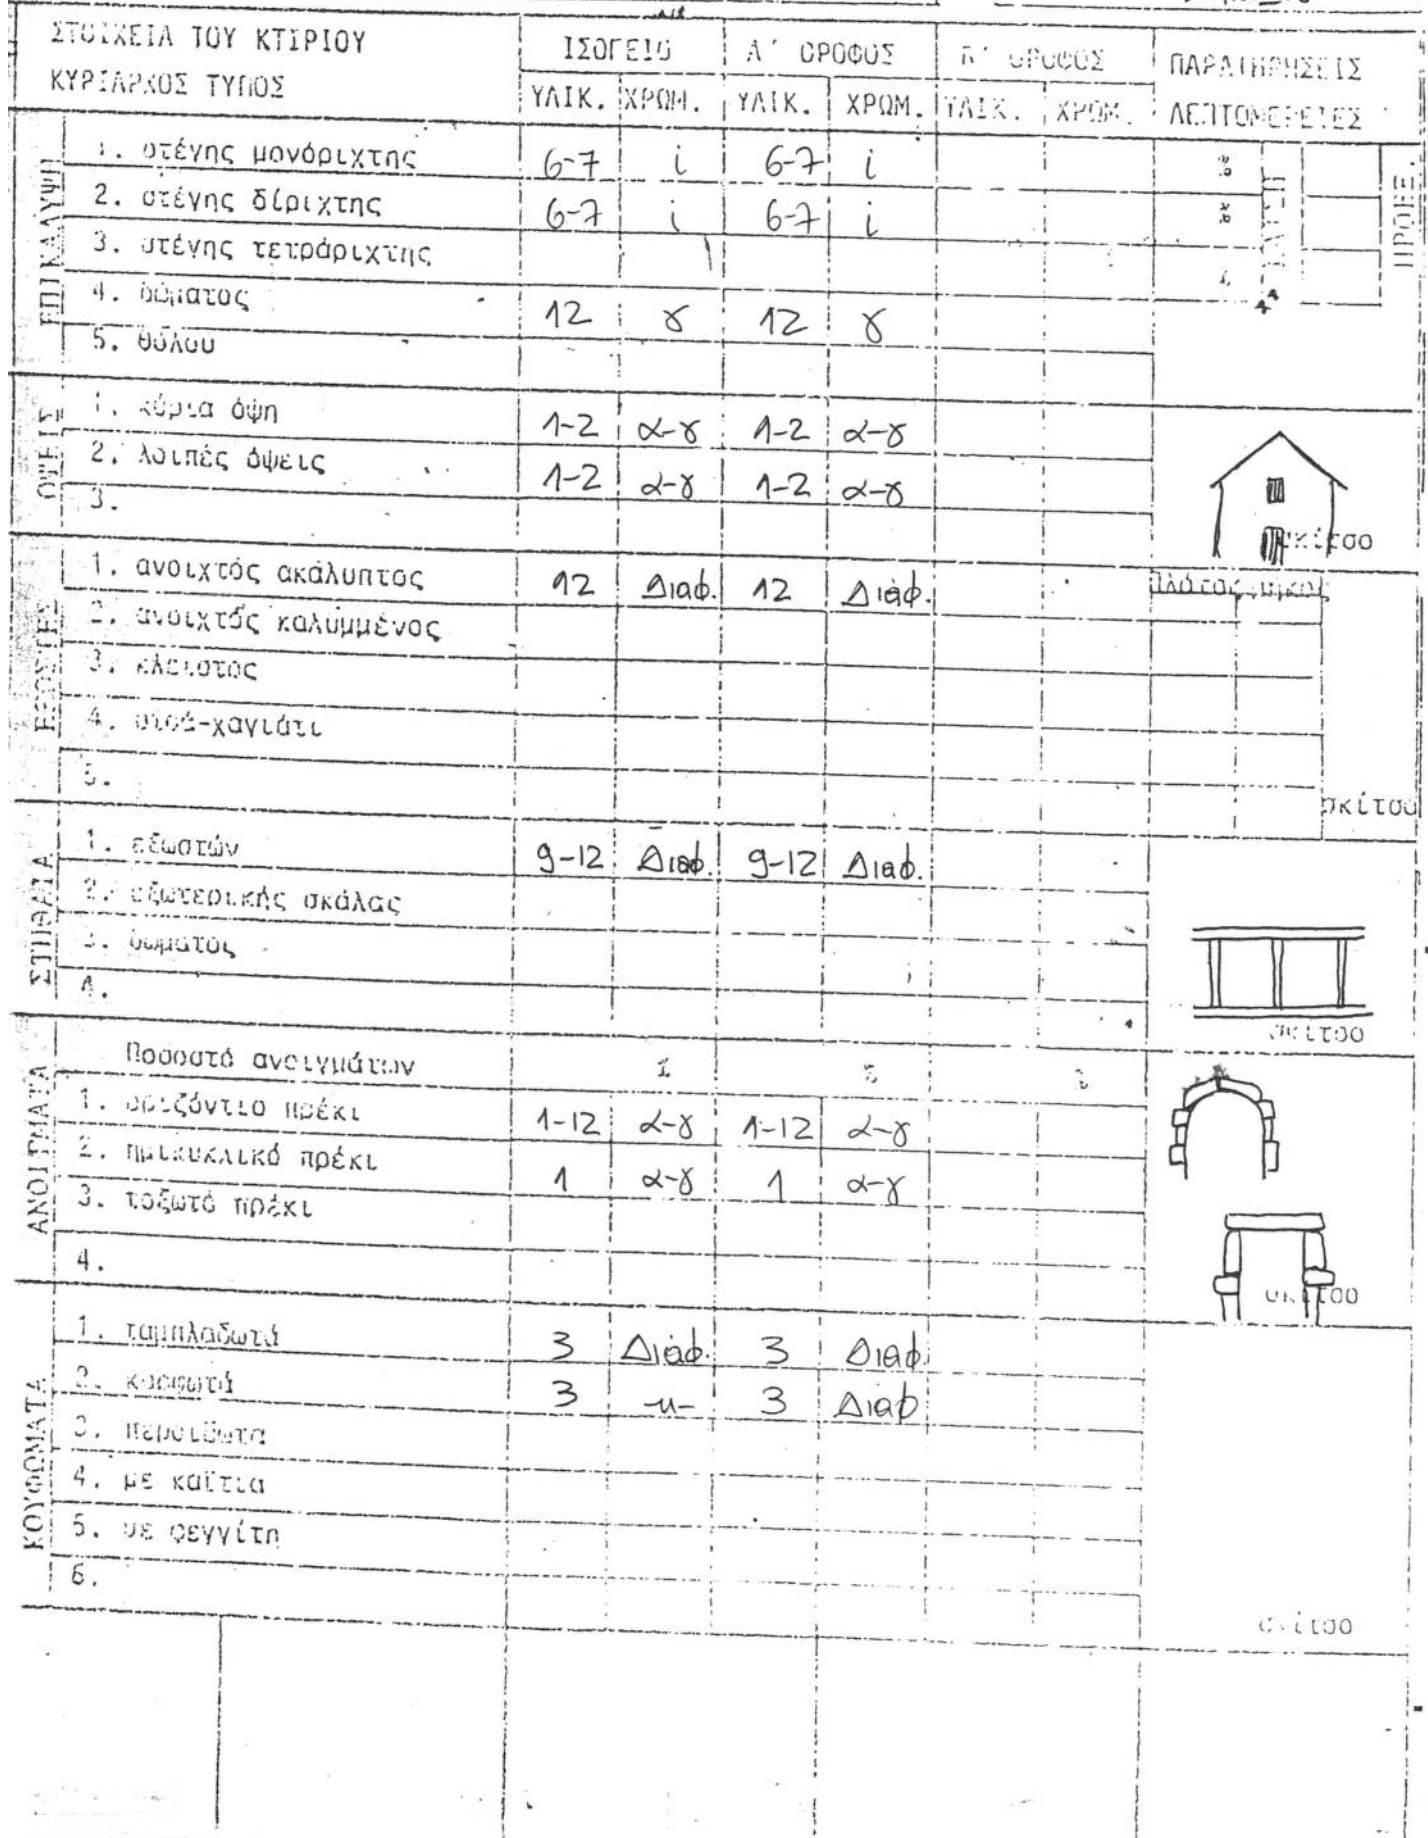 ΣΤΟΙΧΕΙΑ ΤΟΥ ΚΤΙΡΙΟΥ
ΚΥΡΙΑΡΧΟΣ ΤΥΠΟΣ
ΙΣΟΓΕΙΟ Α΄ ΟΡΟΦΟΣ Β΄ ΟΡΟΦΟΣ ΠΑΡΑΤΗΡΗΣΕΙΣ
ΥΛΙΚ. ΧΡΩΜ. ΥΛΙΚ. ΧΡΩΜ. ΥΛΙΚ. ΧΡΩΜ. ΛΕΠΤΟΜΕΡΕΙΕΣ
ΕΠΙΚΑΛΥΨΗ
1. στέγης μονόριχτης 6-7 i 6-7 i
2. στέγης δίριχτης 6-7 i 6-7 i
3. στέγης τετράριχτης
4. δώματος 12 γ 12 γ
5. θόλου
ΚΛΙΣΗ
ΠΡΟΕΞ.
ΟΨΕΙΣ
1. κύρια όψη 1-2 α-γ 1-2 α-γ
2. λοιπές όψεις 1-2 α-γ 1-2 α-γ
3.
σκίτσο
ΕΞΩΣΤΕΣ
1. ανοιχτός ακάλυπτος 12 Διαφ. 12 Διαφ. πλάτος μήκος
2. ανοιχτός καλυμμένος
3. κλειστος
4. στοά-χαγιάτι
5.
σκίτσο
ΣΤΗΘΑΙΑ
1. εξωστών 9-12 Διαφ. 9-12 Διαφ.
2. εξωτερικής σκάλας
3. δώματος
4.
σκίτσο
ΑΝΟΙΓΜΑΤΑ
Ποσοστό ανοιγμάτων % % %
1. οριζόντιο πρέκι 1-12 α-γ 1-12 α-γ
2. ημικυκλικό πρέκι 1 α-γ 1 α-γ
3. τοξωτό πρέκι
4.
σκίτσο
ΚΟΥΦΩΜΑΤΑ
1. ταμπλαδωτά 3 Διαφ. 3 Διαφ.
2. καρφωτά 3 -〃- 3 Διαφ
3. περσιδωτα
4. με καϊτια
5. με φεγγίτη
6.
σκίτσο